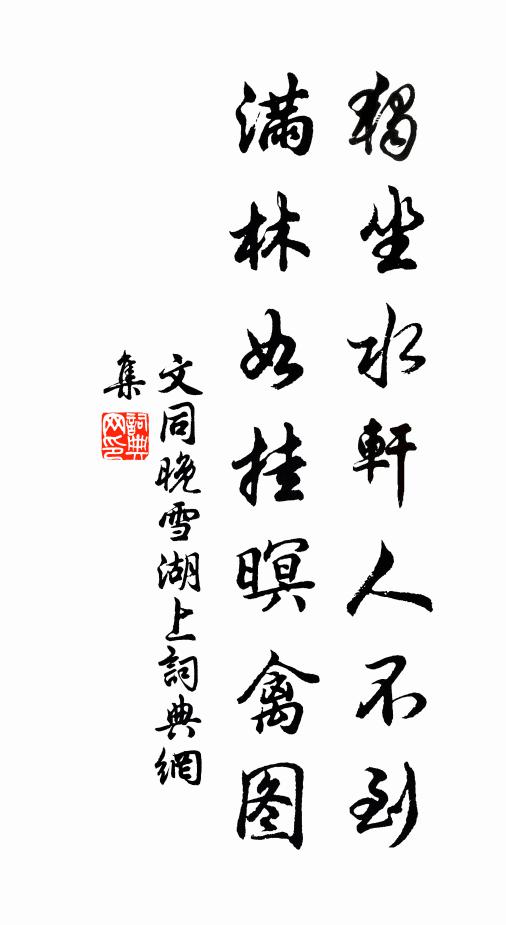 獨坐水軒人不到
滿林如挂暝禽图
文同晚雪湖上詞典網
集
詞典网印